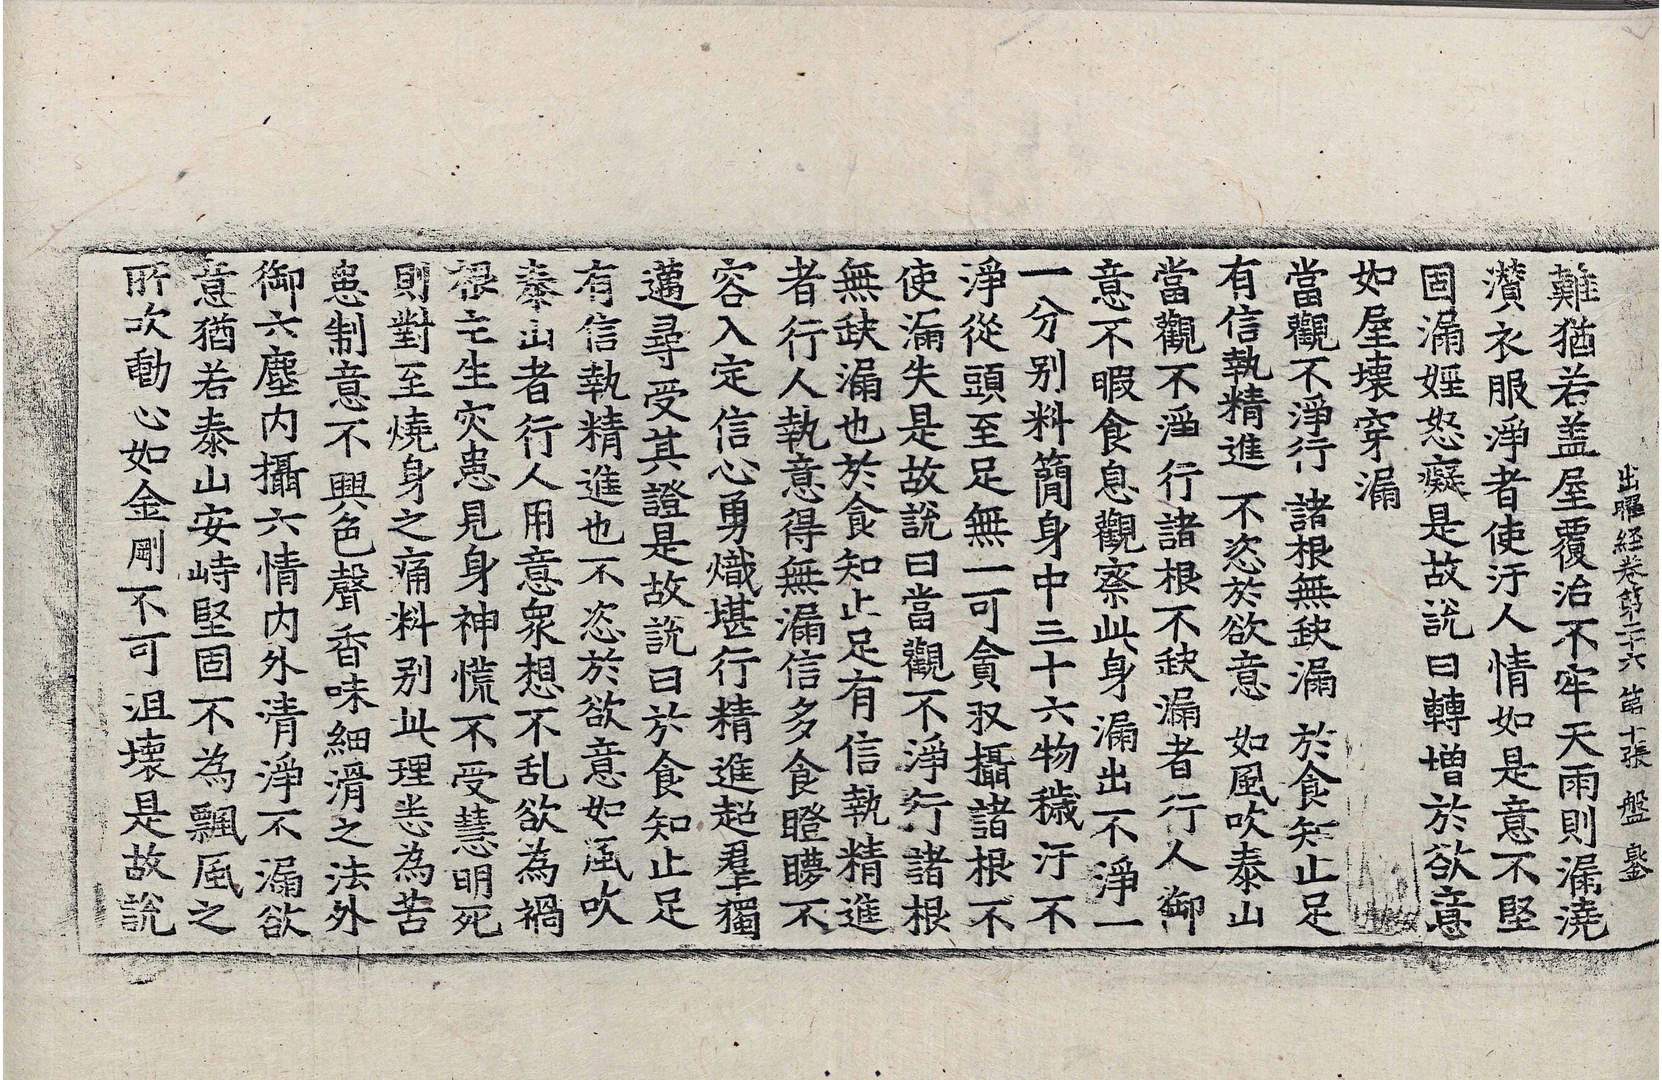 出曜経卷第二十六 第十張 盤
難猶若盖屋覆治不牢天雨則漏澆
灒衣服淨者使汙人情如是意不堅
固漏婬怒癡是故說曰轉增於欲意
如屋壞穿漏
當觀不淨行 諸根無缺漏 於食知止足
有信執精進 不恣於欲意 如風吹泰山
當觀不淨行諸根不缺漏者行人御
意不暇食息觀察此身漏出不淨一
一分別料簡身中三十六物穢汙不
淨從頭至足無一可貪収攝諸根不
使漏失是故說曰當觀不淨行諸根
無缺漏也於食知止足有信執精進
者行人執意得無漏信多食瞪瞢不
容入定信心勇熾堪行精進超羣獨
邁尋受其證是故說曰於食知止足
有信執精進也不恣於欲意如風吹
泰山者行人用意衆想不乱欲為禍
根亡生灾患見身神慌不受慧明死
則對至燒身之痛料別此理恚為苦
患制意不興色聲香味細滑之法外
御六塵内攝六情内外清淨不漏欲
意猶若泰山安峙堅固不為飄風之
所吹動心如金剛不可沮壞是故說